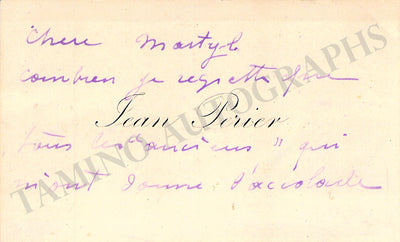 Chere Martyl
combien je regrette que
Jean Périer
tous les "anciens" qui
m'ont donné l'accolade
TAMINO AUTOGRAPHS